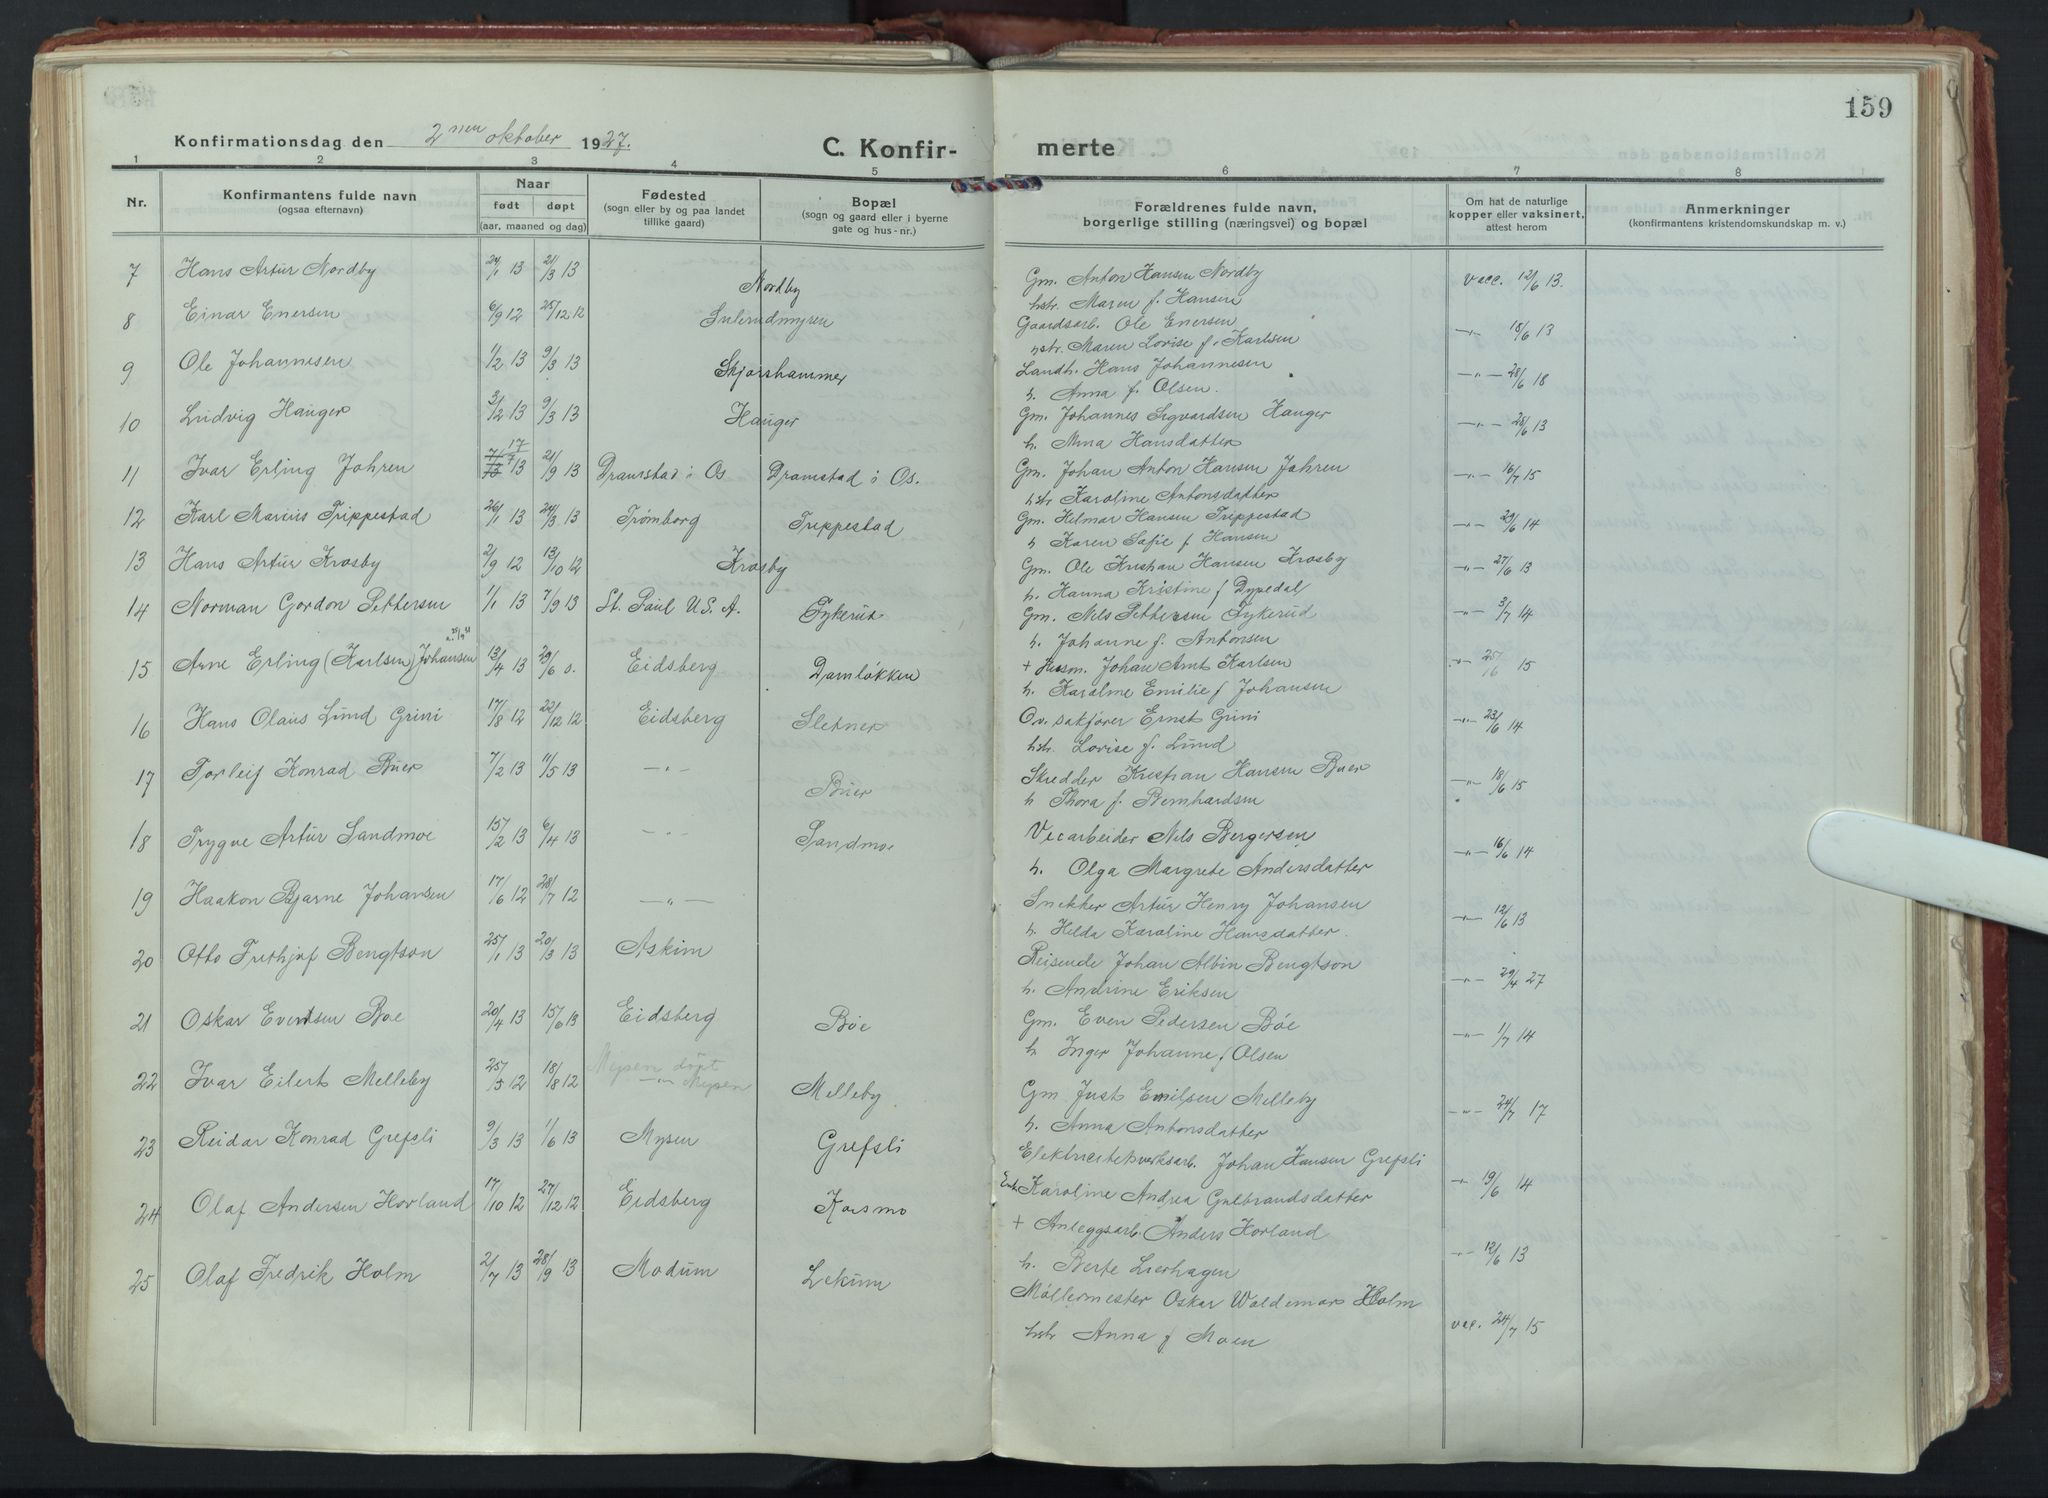 159
Konfirmationsdag den 2nen oktober 1927.
C. Konfir-
merte
1 2 3 4 5 6 7 8
Nr.
Konfirmantens fulde navn
(ogsaa efternavn)
Naar
født døpt
(aar, maaned og dag)
Fødested
(sogn eller by og paa landet
tillike gaard)
Bopæl
(sogn og gaard eller i byerne
gate og hus-nr.)
Forældrenes fulde navn,
borgerlige stilling (næringsvei) og bopæl
Om hat de naturlige
kopper eller vaksinert,
attest herom
Anmerkninger
(konfirmantens kristendomskundskap m. v.)
7 Hans Artur Nordby 24/1 13 21/3 13 Nordby Gm. Anton Hansen Nordby vacc. 12/6 13.
hstr. Maren f. Hansen
8 Einar Enersen 6/9 12 25/12 12 Sulerudmyren Gaardsarb. Ole Enersen -"- 18/6 13
hstr. Maren Lovise f. Karlsen
9 Ole Johannesen 1/2 13 9/3 13 Skjorshammer Landh. Hans Johannesen -"- 28/6 18
h. Anna f. Olsen.
10 Ludvig Hauger 3/2 13 9/3 13 Hauger Gm. Johannes Sigvardsen Hauger -"- 28/6 13
h. Anna Hansdatter
11 Ivar Erling Jahren 17/7 13 21/9 13 Dramstad i Os Dramstad i Os. Gm. Johan Anton Hansen Jahren -"- 16/7 15
hstr Karoline Antonsdatter
12 Karl Marius Trippestad 26/1 13 24/3 13 Trømborg Trippestad Gm. Hilmar Hansen Trippestad -"- 29/6 14
h Karen Sofie f Hansen
13 Hans Artur Krosby 2/9 12 13/10 12 Krosby Gm. Ole Kristian Hansen Krosby -"- 27/6 13
h. Hanna Kristine f Dypedal
14 Norman Gordon Pettersen 1/1 13 7/9 13 St. Paul U.S.A. Tykerud Gm. Nels Pettersen Tykerud -"- 3/7 14
h. Johanne f. Antonsen
15 Arne Erling (Karlsen) Johansen 13/4 13 29/6 s. Eidsberg Damløkken + Husm. Johan Arnt Karlsen -"- 25/6 15
h. Karoline Emilie f Johansen
16 Hans Olaus Lund Grini 17/8 12 22/12 12 Eidsberg Sletner Ov.sakfører Ernst Grini -"- 23/6 14
hstr. Lovise f. Lund
17 Torleif Konrad Buer 7/2 13 11/5 13 -"- Buer Skredder Kristian Hansen Buer -"- 18/6 15
h Thora f. Bernhardsen
18 Trygve Artur Sandmoe 15/2 13 6/4 13 -"- Sandmoe Veiarbeider Nils Bergersen -"- 16/6 14
h. Olga Margrete Andersdatter
19 Haakon Bjarne Johansen 17/6 12 28/7 12 -"- Snekker Artur Henry Johansen -"- 12/6 13
h. Hilda Karoline Hansdatter.
20 Otto Frithjof Bengtson 25/1 13 20/3 13 Askim Reisende Johan Albin Bengtson -"- 29/4 27
h. Andrine Eriksen
21 Oskar Evensen Bøe 20/4 13 15/6 13 Eidsberg Bøe Gm. Even Pedersen Bøe -"- 1/7 14
h Inger Johanne f Olsen
22 Ivar Eilert Melleby 25/5 12 18/8 12 Mysen døpt -"- Mysen Melleby Gm Just Emilsen Melleby -"- 24/7 17
h. Anna Antonsdatter
23 Reidar Konrad Grefsli 9/3 13 1/6 13 Mysen Grefsli Elektricitetsverksarb. Johan Hansen Grefsli -"- 19/6 14
Enk. Karoline Andrea Gulbrandsdatter
24 Olaf Andersen Horland 17/10 12 27/12 12 Eidsberg Korsmo + Anleggsarb. Anders Horland -"- 12/6 13
h. Berte Lierhagen
25 Olaf Fredrik Holm 2/7 13 28/9 13 Modum Lekum Møllermester Oskar Waldemar Holm vac. 24/7 15
hstr Anna f Moen